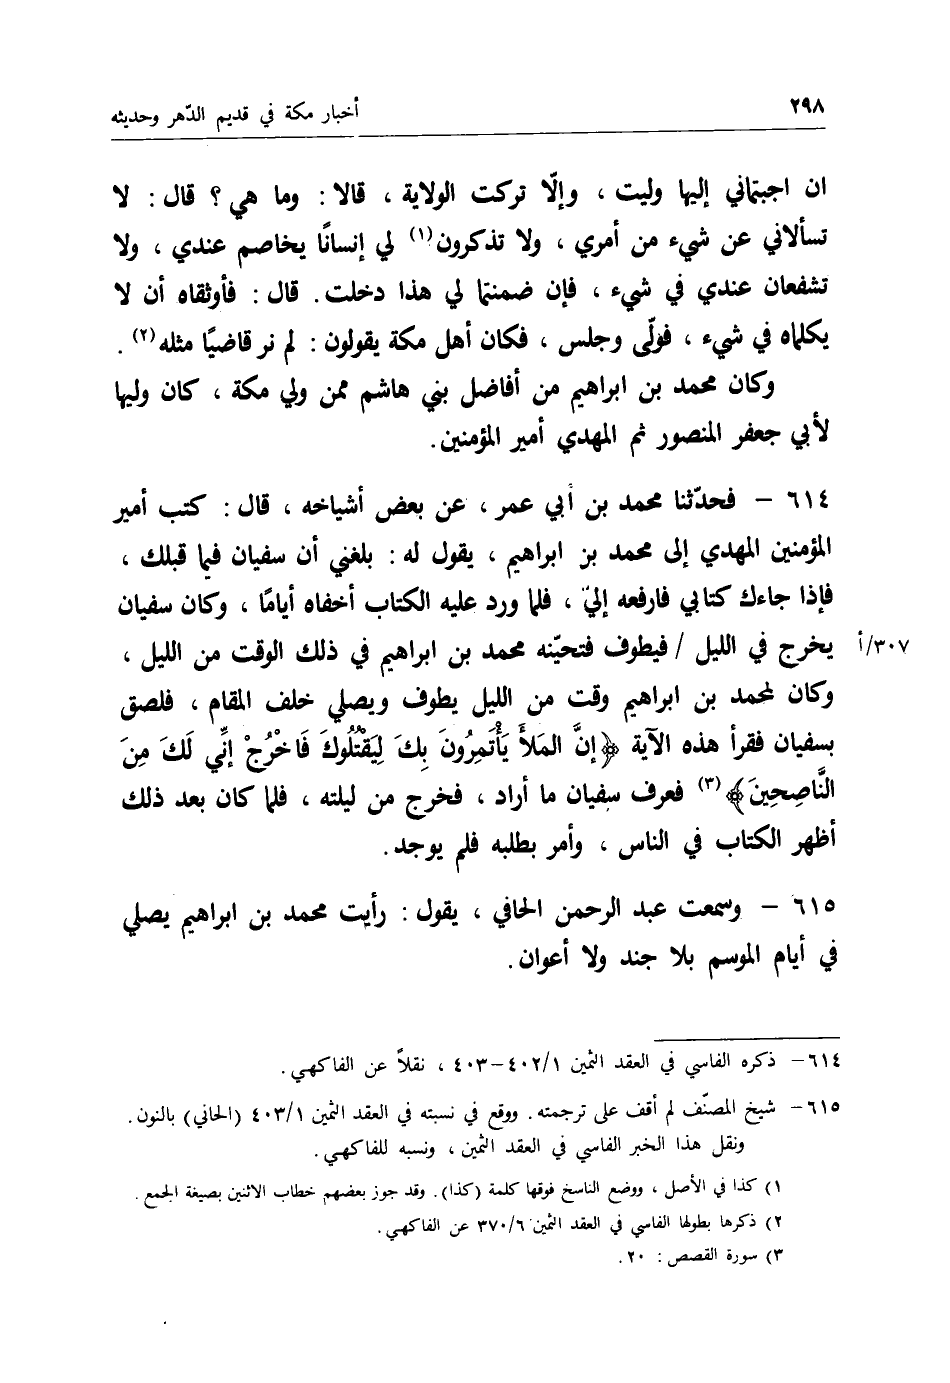 ٢٩٨
أخبار مكة في قديم الدّهر وحديثه
ان اجبتماني إليها وليت ، وإلّا تركت الولاية ، قالا : وما هي ؟ قال : لا
تسألاني عن شيء من أمري ، ولا تذكرون(١) لي إنسانًا يخاصم عندي ، ولا
تشفعان عندي في شيء ، فإن ضمنتما لي هذا دخلت. قال : فأوثقاه أن لا
يكلماه في شيء ، فولّى وجلس ، فكان أهل مكة يقولون : لم نر قاضيًا مثله(٢) .
وكان محمد بن ابراهيم من أفاضل بني هاشم ممن ولي مكة ، كان وليها
لأبي جعفر المنصور ثم المهدي أمير المؤمنين.
٦١٤ – فحدّثنا محمد بن أبي عمر ، عن بعض أشياخه ، قال : كتب أمير
المؤمنين المهدي إلى محمد بن ابراهيم ، يقول له : بلغني أن سفيان فيما قبلك ،
فإذا جاءك كتابي فارفعه إليّ ، فلما ورد عليه الكتاب أخفاه أيامًا ، وكان سفيان
يخرج في الليل / فيطوف فتحيّنه محمد بن ابراهيم في ذلك الوقت من الليل ،
٣٠٧/أ
وكان لمحمد بن ابراهيم وقت من الليل يطوف ويصلي خلف المقام ، فلصق
بسفيان فقرأ هذه الآية ﴿إنَّ المَلأَ يَأْتَمِرُونَ بِكَ لِيَقْتُلُوكَ فَاخْرُجْ إنِّي لَكَ مِنَ
النَّاصِحِينَ﴾(٣) فعرف سفيان ما أراد ، فخرج من ليلته ، فلما كان بعد ذلك
أظهر الكتاب في الناس ، وأمر بطلبه فلم يوجد.
٦١٥ – وسمعت عبد الرحمن الحافي ، يقول : رأيت محمد بن ابراهيم يصلي
في أيام الموسم بلا جند ولا أعوان.
٦١٤– ذكره الفاسي في العقد الثمين ٤٠٢/١–٤٠٣ ، نقلاً عن الفاكهي.
٦١٥– شيخ المصنّف لم أقف على ترجمته. ووقع في نسبته في العقد الثمين ٤٠٣/١ (الحاني) بالنون.
ونقل هذا الخبر الفاسي في العقد الثمين ، ونسبه للفاكهي.
١) كذا في الأصل ، ووضع الناسخ فوقها كلمة (كذا). وقد جوز بعضهم خطاب الاثنين بصيغة الجمع.
٢) ذكرها بطولها الفاسي في العقد الثمين ٣٧٠/٦ عن الفاكهي.
٣) سورة القصص : ٢٠.